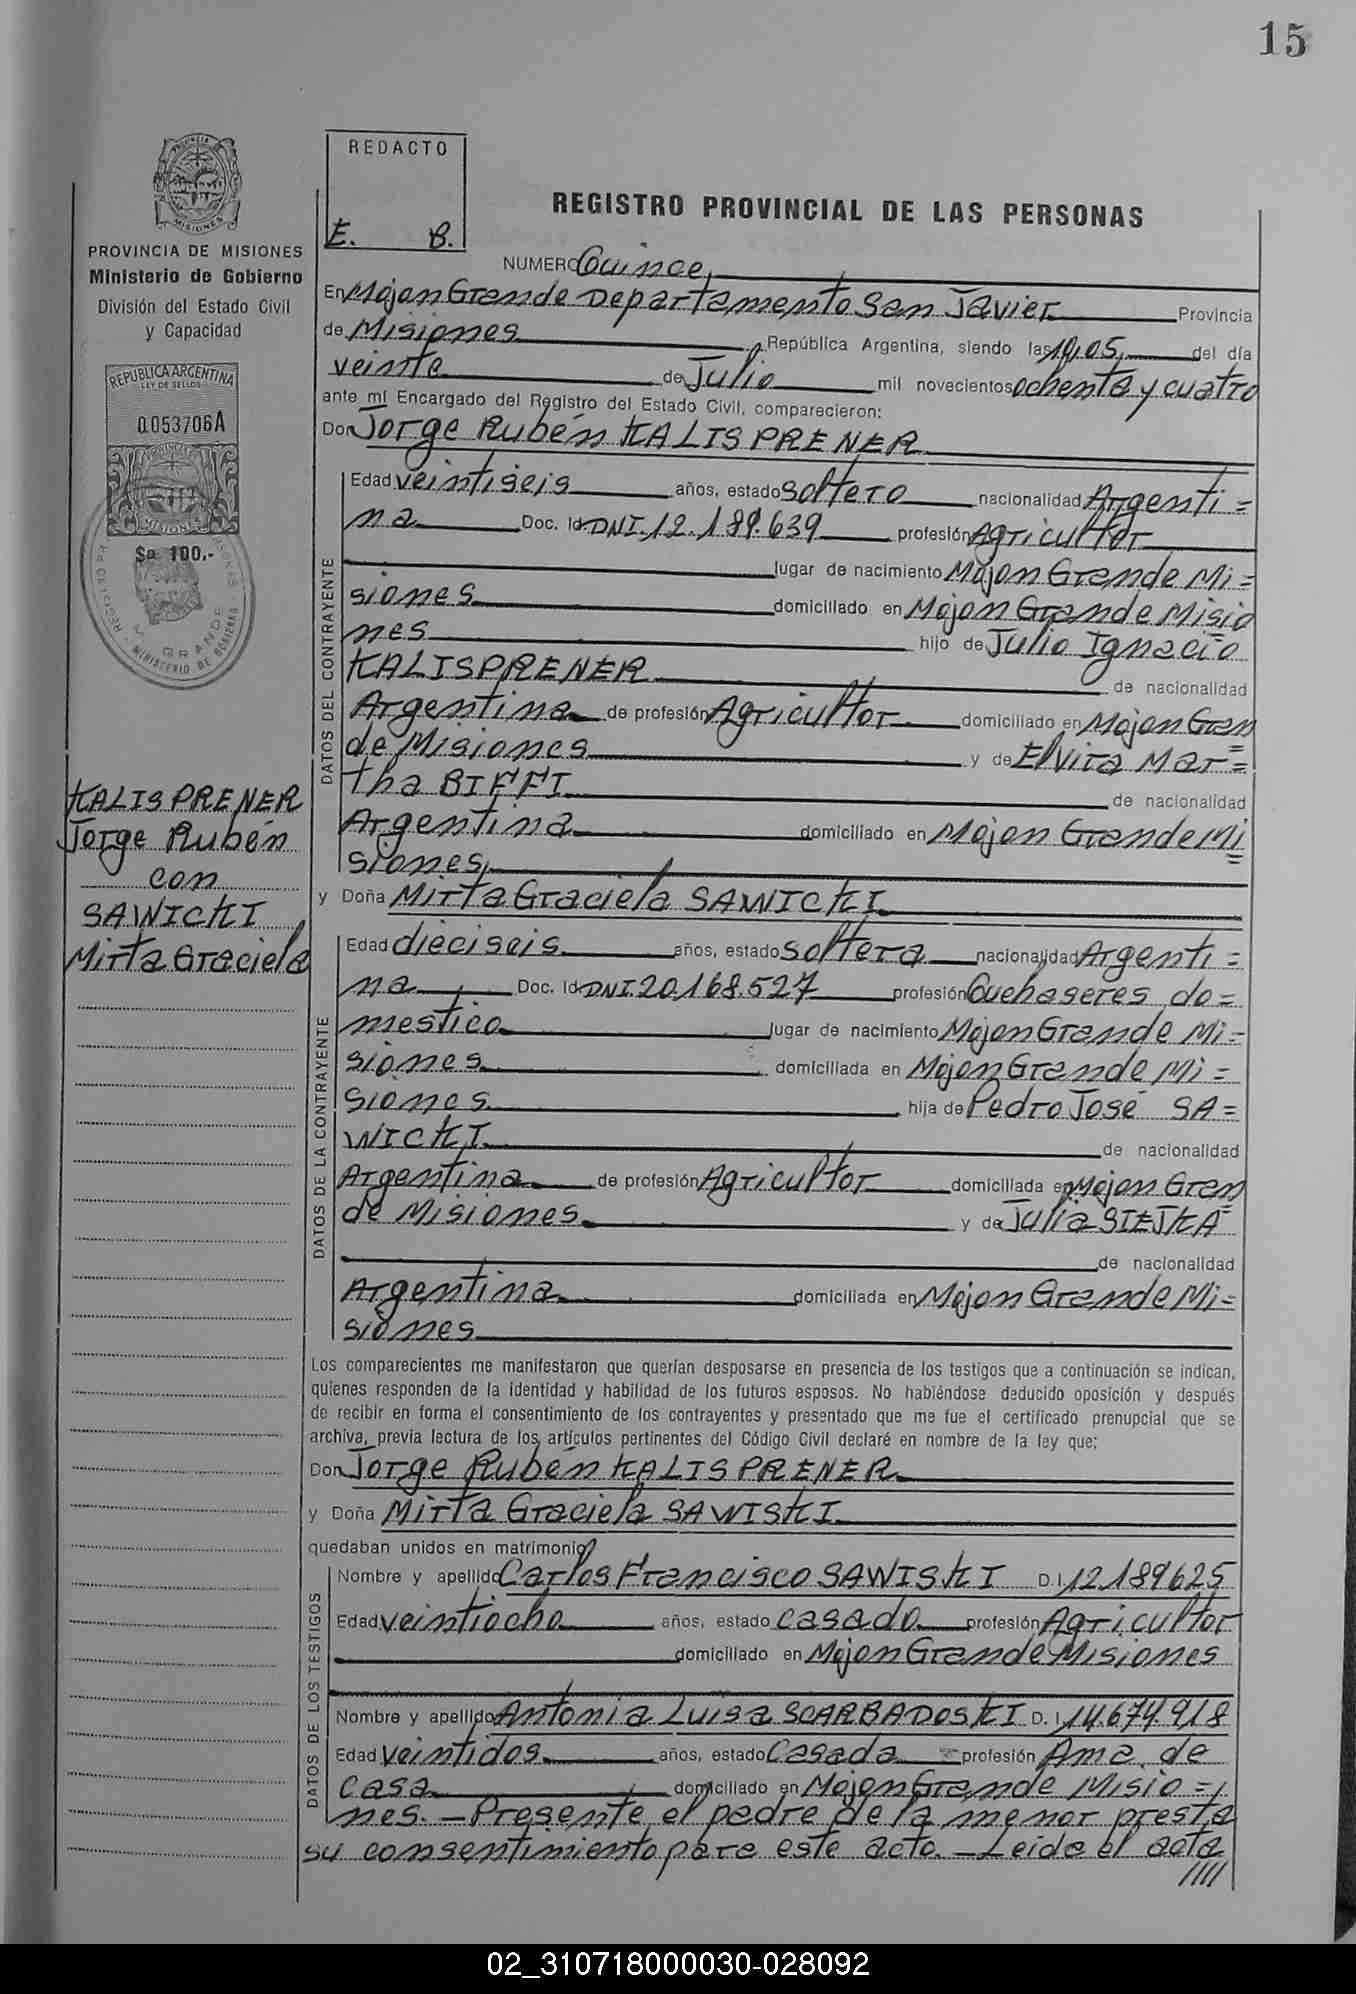 15
REDACTO
E. B.
PROVINCIA DE MISIONES
Ministerio de Gobierno
División del Estado Civil
y Capacidad
REPUBLICA ARGENTINA
LEY DE SELLOS
0.053706A
MISIONES
$a 100.-
KALISPRENER
Jorge Rubén
con
SAWICKI
Mirta Graciela
REGISTRO PROVINCIAL DE LAS PERSONAS
NUMERO Quince
En Mojon Grande Departamento San Javier Provincia
de Misiones República Argentina, siendo las 10,05 del día
veinte de Julio mil novecientos ochenta y cuatro
ante mí Encargado del Registro del Estado Civil, comparecieron:
Don Jorge Rubén KALISPRENER
DATOS DEL CONTRAYENTE
Edad veintiseis años, estado soltero nacionalidad Argenti=
na Doc. Id. DNI.12.189.639 profesión Agricultor
lugar de nacimiento Mojon Grande Mi=
siones domiciliado en Mojon Grande Misio
nes hijo de Julio Ignacio
KALISPRENER de nacionalidad
Argentina de profesión Agricultor domiciliado en Mojon Gran
de Misiones y de Elvira Mar=
tha BIFFI de nacionalidad
Argentina domiciliado en Mojon Grande Mi
siones,
y Doña Mirta Graciela SAWICKI
DATOS DE LA CONTRAYENTE
Edad dieciseis años, estado soltera nacionalidad Argenti=
na Doc. Id. DNI.20.168.527 profesión Quehaseres do=
mestico lugar de nacimiento Mojon Grande Mi=
siones domiciliada en Mojon Grande Mi=
siones hija de Pedro José SA=
WICKI de nacionalidad
Argentina de profesión Agricultor domiciliada en Mojon Gran
de Misiones y de Julia SIEJKA
de nacionalidad
Argentina domiciliada en Mojon Grande Mi=
siones
Los comparecientes me manifestaron que querían desposarse en presencia de los testigos que a continuación se indican,
quienes responden de la identidad y habilidad de los futuros esposos. No habiéndose deducido oposición y después
de recibir en forma el consentimiento de los contrayentes y presentado que me fue el certificado prenupcial que se
archiva, previa lectura de los artículos pertinentes del Código Civil declaré en nombre de la ley que;
Don Jorge Rubén KALISPRENER
y Doña Mirta Graciela SAWISKI
quedaban unidos en matrimonio
DATOS DE LOS TESTIGOS
Nombre y apellido Carlos Francisco SAWISKI D.I. 12189625
Edad veintiocho años, estado casado profesión Agricultor
domiciliado en Mojon Grande Misiones
Nombre y apellido Antonia Luisa SCARBADOSKI D. I. 14.674.918
Edad veintidos años, estado Casada profesión Ama de
casa domiciliado en Mojon Grande Misio=
nes.-Presente el padre de la menor presta
su consentimiento para este acto.-Leida el acta
////
02_310718000030-028092